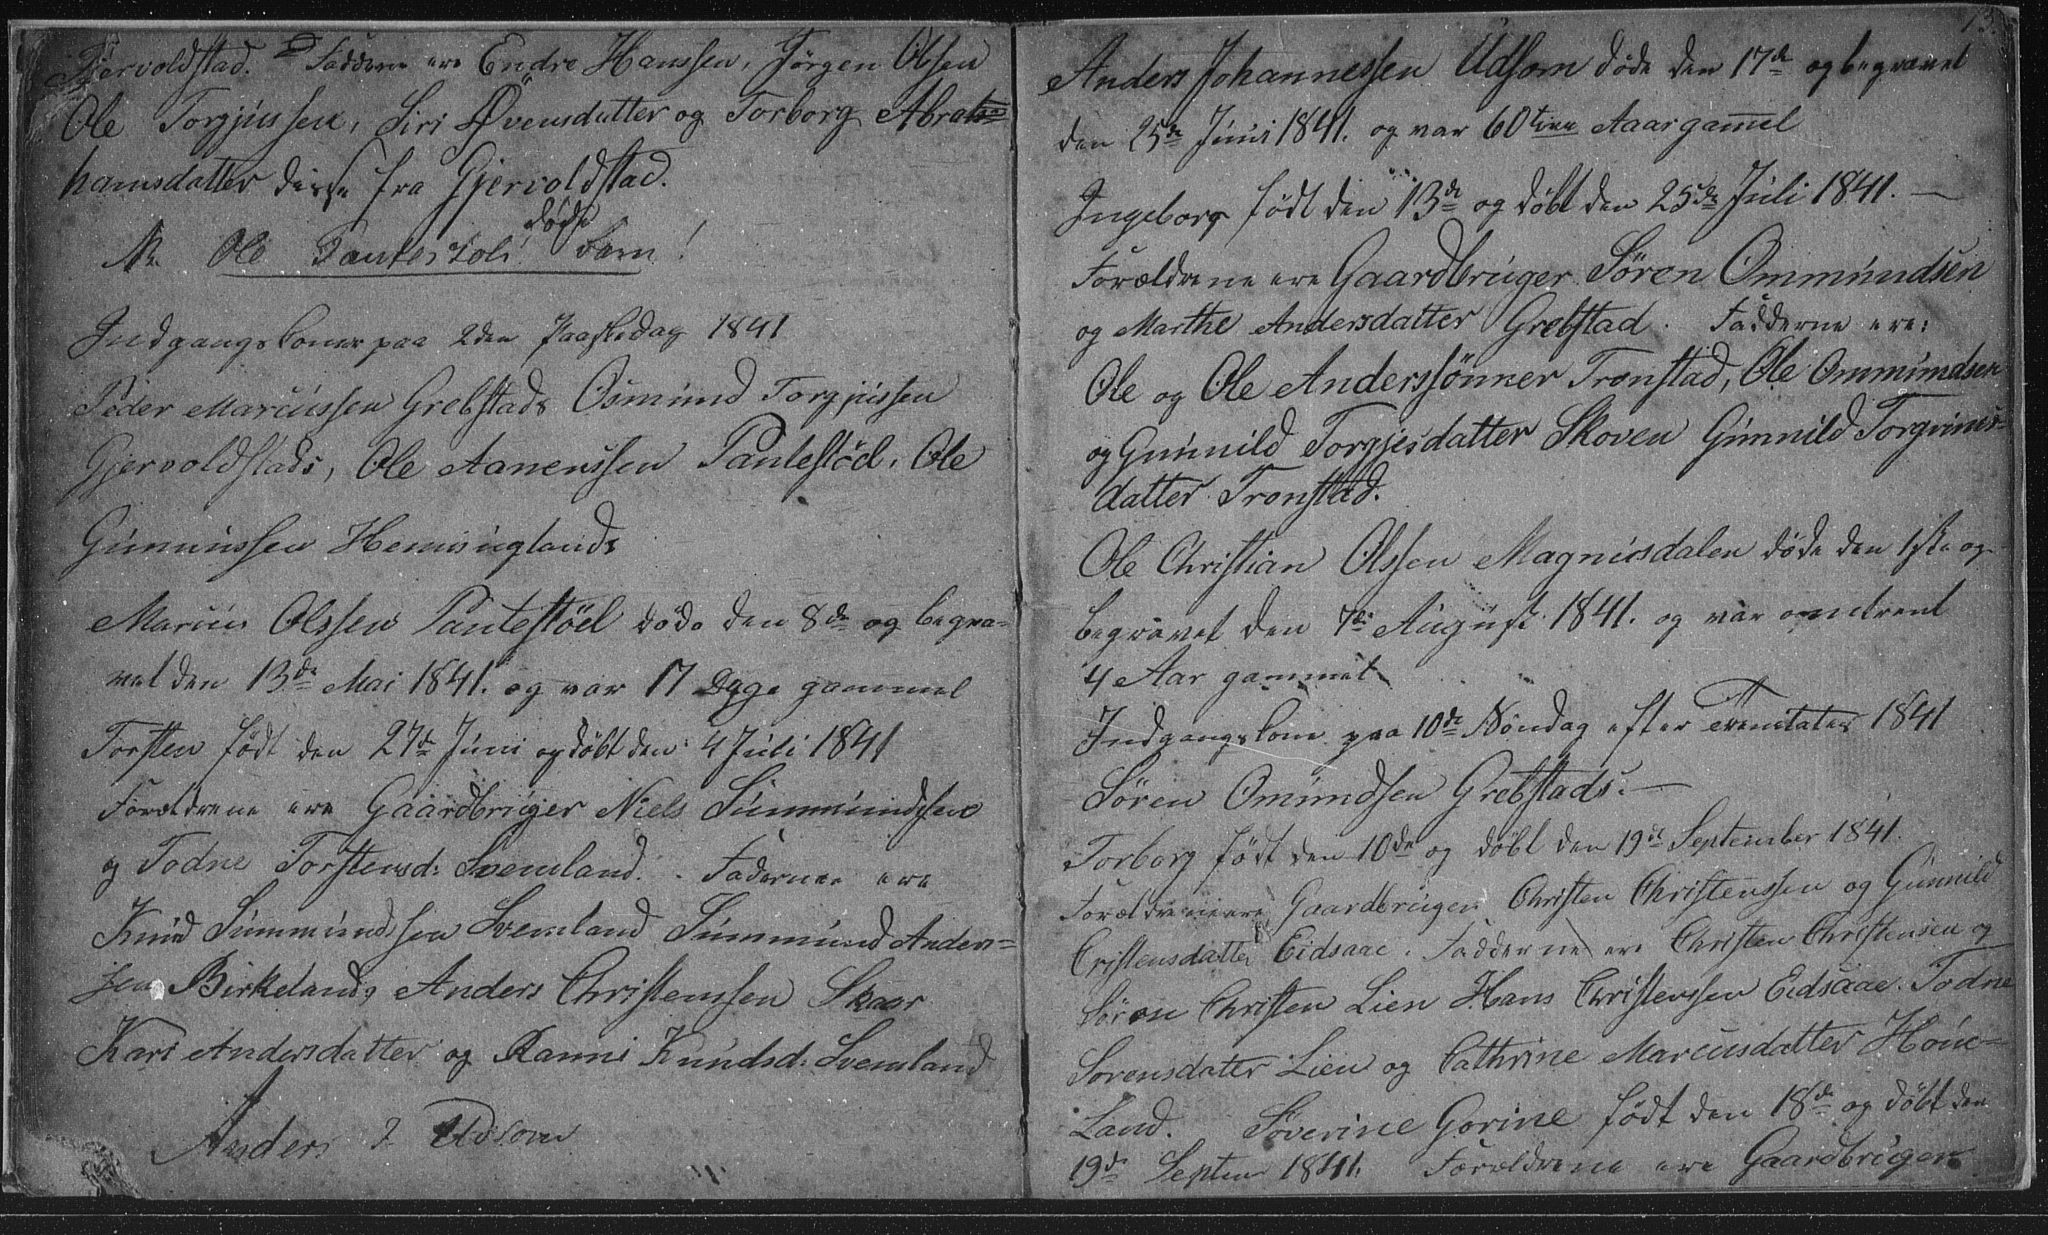 Gjervoldstad. Fadderne ere Endre Hanssen, Jørgen Olsen
Ole Torgjussen, Siri Øvensdatter og Torborg Abra-
hamsdatter disse fra Gjervoldstad.
døde
Ole Pantestøls Barn!
Indgangskoner paa 2den Paaskedag 1841
Peder Marcussen Grebstads Osmund Torgjussen
Gjervoldstads, Ole Aanenssen Pantestøel, Ole
Gunnussen Hemninglands
Marcus Olssen Pantestøel døde den 8de og begra-
vet den 13de Mai 1841. og var 17 Dage gammel
Torsten født den 27de Juni og døbt den 4 Juli 1841
Forældrene ere Gaardbruger Niels Summundsen
og Todne Torstensd: Svemland. Faderne ere
Knud Summundsen Svemland Summund Anders-
sen Birkeland, Anders Christenssen Skaar
Kari Andersdatter og Ranni Knudsd: Svemland
Anders J Udsom
13.
Anders Johannessen Udsom døde den 17de og begravet
den 25de Juni 1841. og var 60 tive Aaar gamel
Ingeborg født den 13de og døbt den 25de Juli 1841. —
Forældrene ere Gaardbruger Søren Ommundsen
og Marthe Andersdatter Grebstad. Fadderne ere:
Ole og Ole Anderssønner Tronstad, Ole Ommundsen
og Gunnild Torgjesdatter Skoven Gunnild Torgrines-
datter Tronstad.
Ole Christian Olssen Magnusdalen døde den 1ste og
begravet den 7de August 1841. og var omtrent
4 Aar gammel
Indgangskone paa 10de Søndag efter Trenitates 1841
Søren Omundsen Grebstads. —
Torborg født den 10de og døbt den 19de September 1841.
Forældrene ere Gaardbruger Christen Christenssen og Gunnild
Cristensdatter Eidsaae. Fadderne ere Christen Christensen og
Søren Christen Lien Hans Christenssen Eidsaae. Todne
Sørensdatter Lien og Cathrine Marcusdatter Høne-
Land. Søverine Gorine født den 18de og døbt den
19de Septem 1841. Forældrene ere Gaardbruger